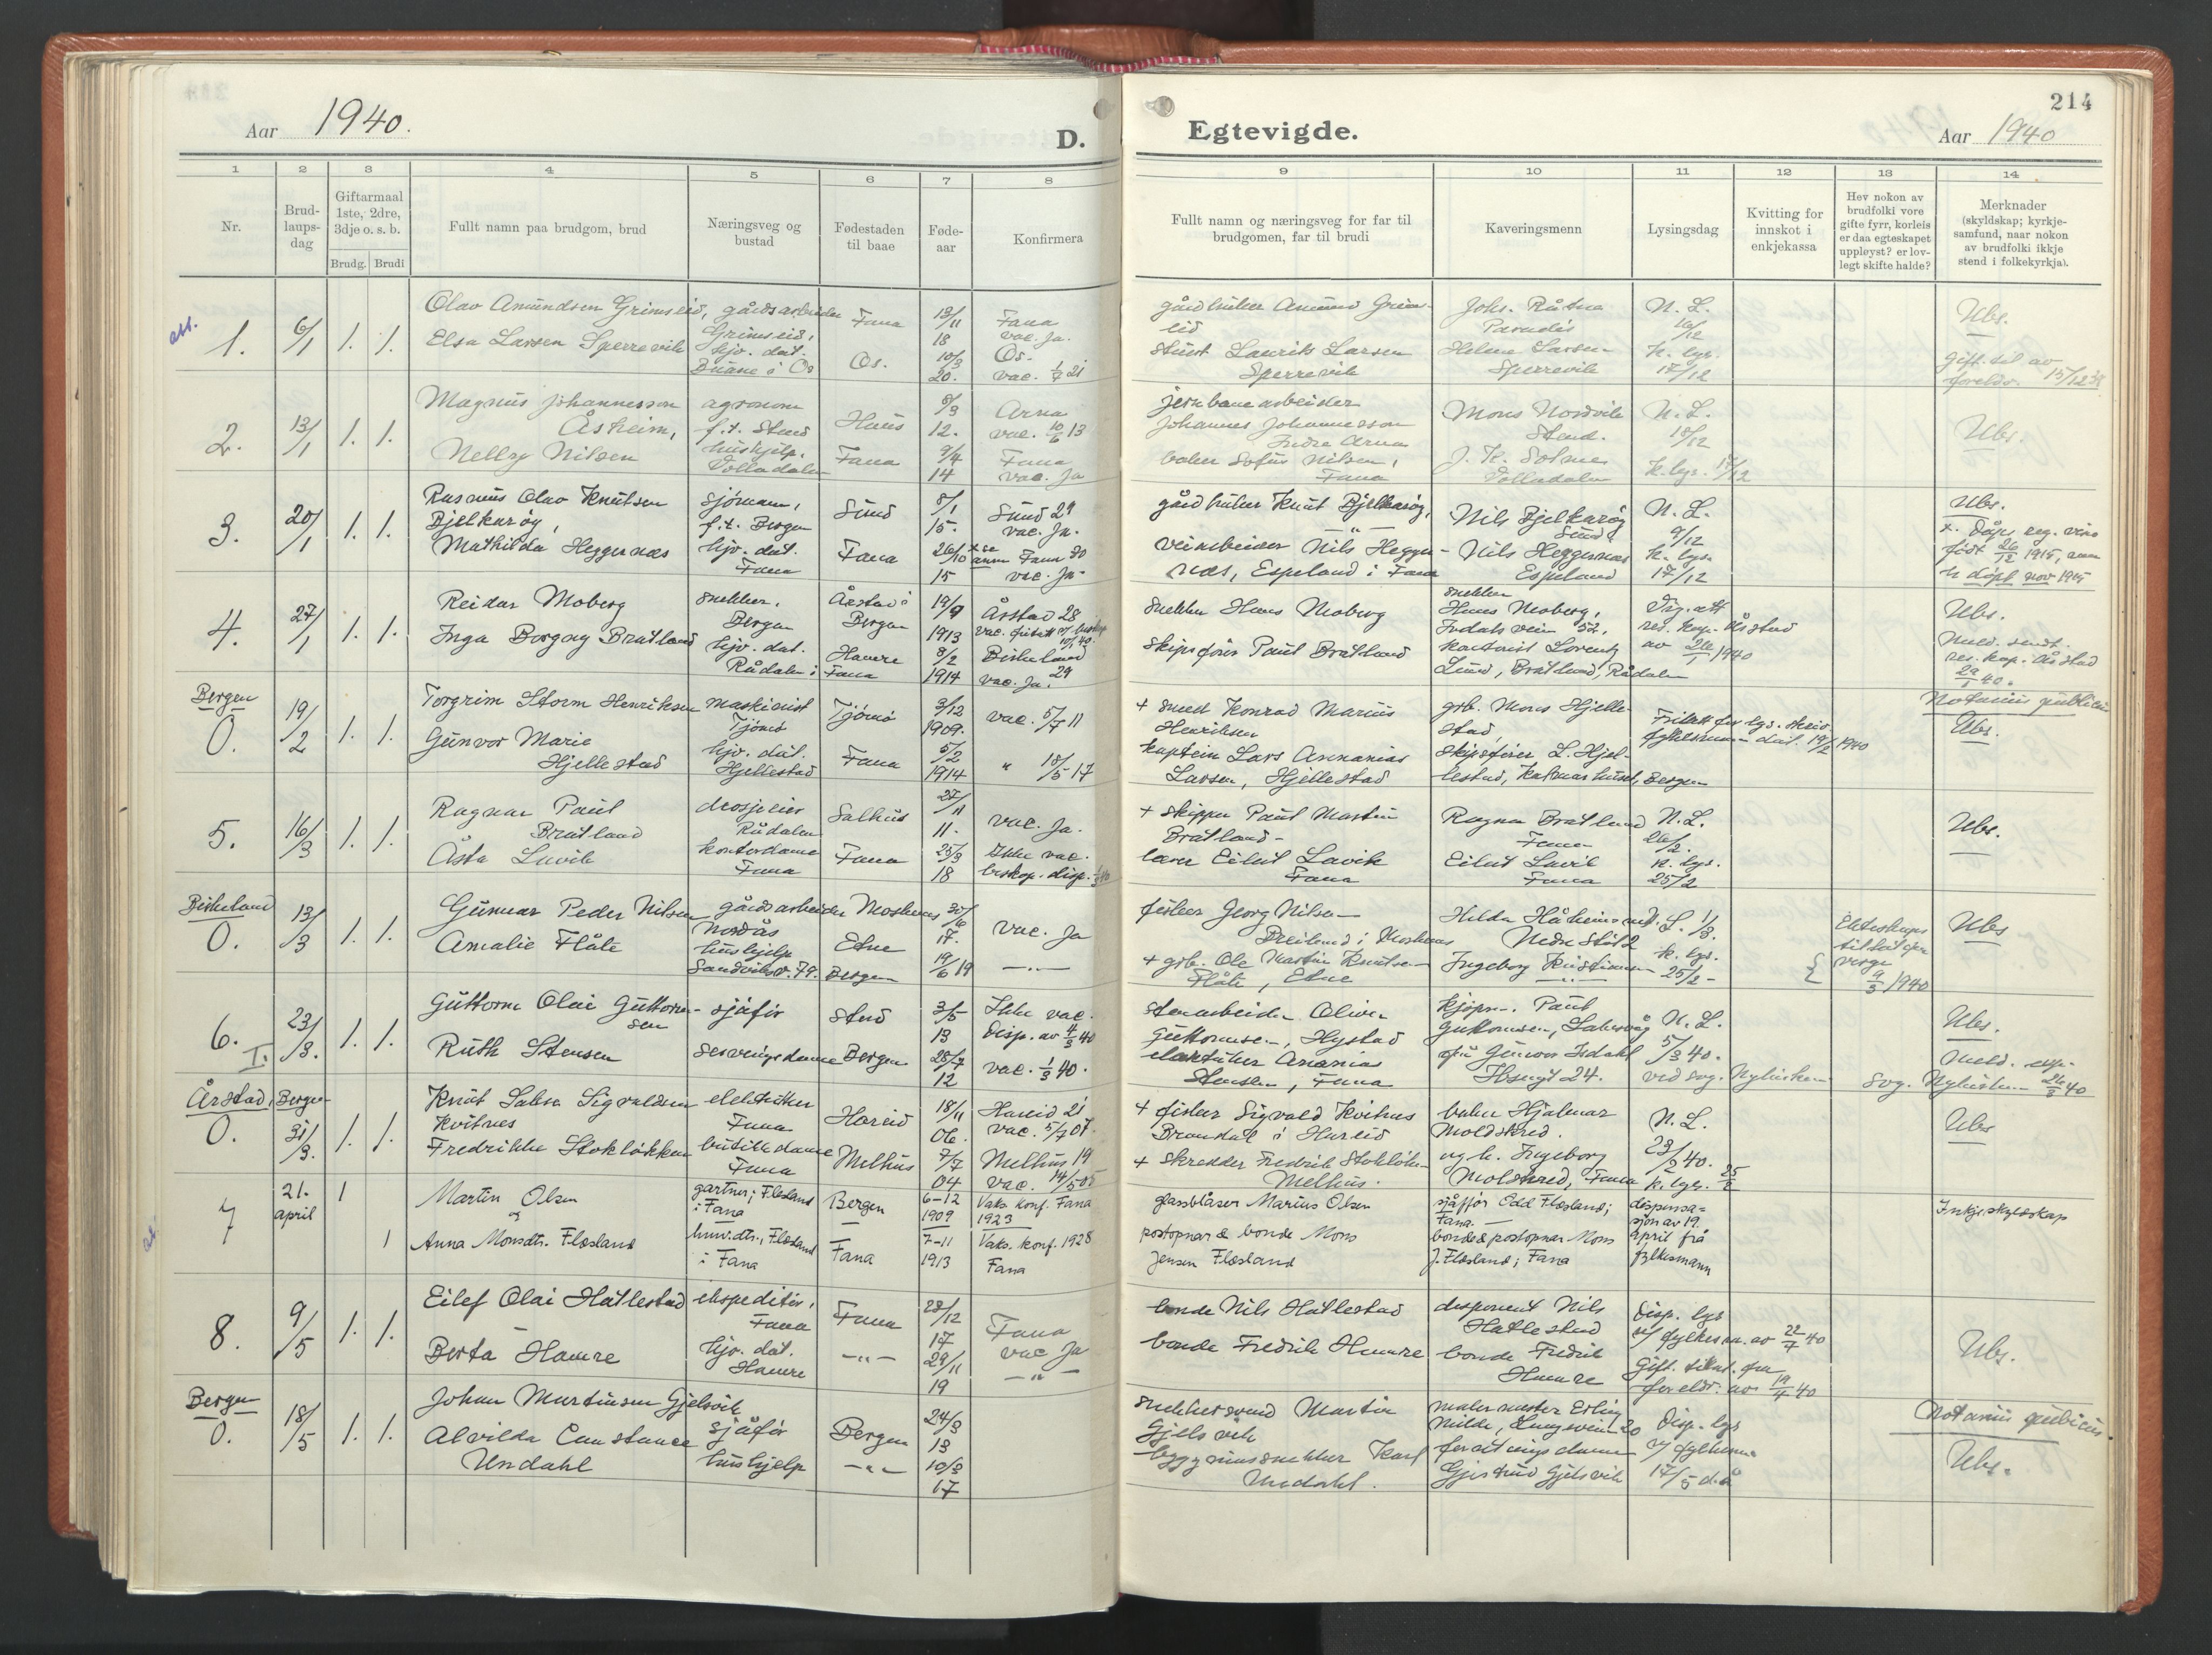 Aar 1940. D.
1 2 3 4 5 6 7 8
Nr.
Brud-
laups-
dag
Giftarmaal
1ste, 2dre,
3dje o. s. b.
Brudg. Brudi
Fullt namn paa brudgom, brud
Næringsveg og
bustad
Fødestaden
til baae
Føde-
aar
Konfirmera
att.
1. 6/1 1. 1.
Olav Amundsen Grimseid, gårdsarbeider Fana 13/11 18 Fana vac. Ja.
Grimseid,
Elsa Larsen Sperrevik hjv. dat. Os. 10/3 20. Os. vac. 1/7 21
i Os
2. 13/1 1. 1.
Magnus Johannesson agronom Haus 8/3 12. Arna vac. 10/6 13
Åsheim, f.t. Stend
Nelly Nilsen hushjelp, Fana 9/4 14 Fana vac. Ja
3. 20/1 1. 1.
Rasmus Olav Knutsen sjømann, Sund 8/1 15. Sund 29 vac. Ja.
Bjelkarøy, f.t. Bergen
Mathilda Heggernes hjv. dat. Fana 26/10 15 Fana 30 vac. Ja.
Fana
4. 27/1 1. 1.
Reidar Moberg snekker, Årstad i 19/9 Årstad 28
Bergen Bergen 1913
Inga Borgny Bratland hjv. dat. Hamre 8/2 Birkeland
Rådalen i Fana 1914 vac. Ja. 29
Bergen
0. 19/2 1. 1.
Torgrim Storm Henriksen maskinist Tjømø 3/12 1909. vac. 5/7 11
Tjømø
Gunvor Marie hjv. dat. Fana 5/2 1914 " 18/5 17
Hjellestad Hjellestad
5. 16/3 1. 1.
Ragnar Paul drosjeeier Salhus 27/11 11. vac. Ja.
Bratland Rådalen
Åsta Lavik kontordame Fana 25/3 18 Ikke vac.
Fana biskop. disp.
Birkeland
0. 13/3 1. 1.
Gunnar Peder Nilsen gårdsarbeider Moskenes 30/6 17. vac. Ja
Nordås
Amalie Flåte hushjelp Etne 19/6 19 —"—
Sandviksv. 79. Bergen
6. I. 23/3. 1. 1.
Guttorm Olai Guttorm- sjåfør Stord 3/5 13 Ikke vac.
sen Disp. av 4/3 40
Ruth Stensen serveringsdame Bergen 28/7 12 vac. 1/3 40.
Årstad, Bergen
0. 31/3. 1. 1.
Knut Sigvaldsen elektriker Hareid 18/11 06. Hareid 21 vac. 5/7 07.
Kvitnes Fana
Fredrikke Stokløkken butikkdame Melhus 7/7 04 Melhus 19 vac. 14/5 05
Fana
7 21. april 1
Martin Olsen gartner; Flesland Bergen 6-12 Vaks. konf. Fana
& i Fana 1909 1923
1 Anna Monsdtr. Flesland husv.dtr., Flesland Fana 7-11 Vaks. konf. 1928
i Fana 1913 Fana
8. 9/5 1. 1.
Eilef Olai Hatlestad ekspeditør, Fana 28/12 17 Fana vac Ja
Fana
Berta Hamre hjv. dat. —"— 29/11 19 —"—
Hamre
Bergen
0. 18/5 1. 1.
Johan Martinsen Gjelsvik sjåfør Bergen 24/3 13
Alvilda Constance hushjelp —"— 10/3 17
Undahl
214
Egtevigde. Aar 1940
9 10 11 12 13 14
Fullt namn og næringsveg for far til
brudgomen, far til brudi
Kaveringsmenn
Lysingsdag
Kvitting for
innskot i
enkjekassa
Hev nokon av
brudfolki vore
gifte fyrr, korleis
er daa egteskapet
uppløyst? er lov-
legt skifte halde?
Merknader
(skyldskap; kyrkje-
samfund, naar nokon
av brudfolki ikkje
stend i folkekyrkja).
gårdbruker Amund Grims- Johs. Råtun N. L. Ubs.
eid Paradis 16/12
Laurits Larsen Helene Larsen k. lys. Gift. til av
Sperrevik Sperrevik 17/12 foreldr. 15/12 39
jernbanearbeider Mons Nordvik N. L. Ubs.
Johannes Johannesson Stend. 18/12
Indre Arna
baker Sofus Nilsen, J. K. Solnes k. lys. 17/12
Fana
gårdbruker Knut Bjelkarøy, Nils Bjelkarøy N. L. Ubs.
Sund 9/12
veiarbeider Nils Hegger- Nils Heggernes k. lys.
nes, Espeland i Fana Espeland 17/12
født 26/12 1915,
døpt nov 1915
Snekker Hans Moberg snekker Ubs.
Hans Moberg,
vei 52, res. kap. Årstad
Skipsfører Paul Bratland Lorentz av 26/1 1940
Lund, Bratland, Rådalen res. kap. Årstad
29/1 40.
+ smed Konrad Marius grb. Mons Hjelle- Notarius publicus
Henriksen stad, Ubs.
19/2 1940
kaptein Lars Annanias skipsfører L. Hjel-
Larsen, Hjellestad lestad, Bergen
+ skipper Paul Martin Ragna Bratland N. L. Ubs.
Bratland - Fana 26/2.
lærer Eilert Lavik Eilert Lavik k. lys.
Fana Fana 25/2
fisker Georg Nilsen N. L. 1/3. Ubs
i Moskenes Nedre
+ grb. Ole Martin Knutsen Ingeborg Kristiansen k. lys. 25/2 - verge 9/3 1940
Flåte, Etne
stenarbeider Oliver kjøpm. Paul N. L. Ubs.
Guttormsen, Hystad Guttormsen, Laksevåg 5/3 40.
Ananias fru Gunvor Isdahl
Stensen, Fana Ibsensgt 24. ved sog. Nykirken sog. Nykirken 26/3 40
+ fisker Sigvald Kvitnes baker Hjalmar N. L. Ubs
Brandal i Hareid Moldskred. 23/2 40.
+ skredder Fredrik Stokløkken og h. Ingeborg
Melhus. Moldskred, Fana k. lys. 25/2
glassblåser Marius Olsen sjåfør Odd Flesland; dispensa= Inkje skyldskap
Fana. — sjon av 19.
postopnar & bonde Mons bonde & postopnar Mons april frå
Jensen Flesland J. Flesland; Fana fylkesmann
bonde Nils Hatlestad disponent Nils Disp. lys
Hatlestad v/ fylkesm. av 22/4 40 Ubs.
bonde Fredrik Hamre bonde Fredrik Gift. tillat. fra
Hamre foreldr. av 19/4 40
snekkersvend Martin malermester Erling Disp. lys Notarius publicus.
Gjelsvik Milde, v/ fylkesm.
bygningssnekker Karl forretningsdame 17/5 d.å Ubs.
Undahl. Gjertrud Gjelsvik